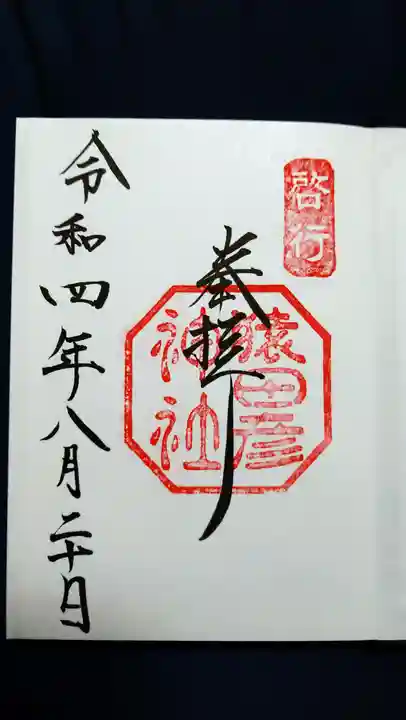 啓行
奉拝
猿田彦
神社
令和四年八月二十日